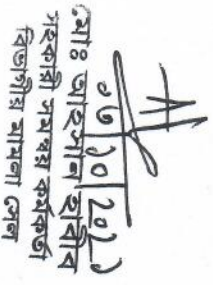 ০৩/১০/২০২১
মোঃ আহসান হাবীব
সহকারী সমন্বয় কর্মকর্তা
বিভাগীয় মামলা সেল